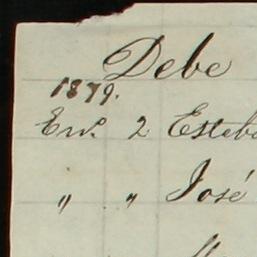 Debe
1879.
En.º 2 Esteb
" " José